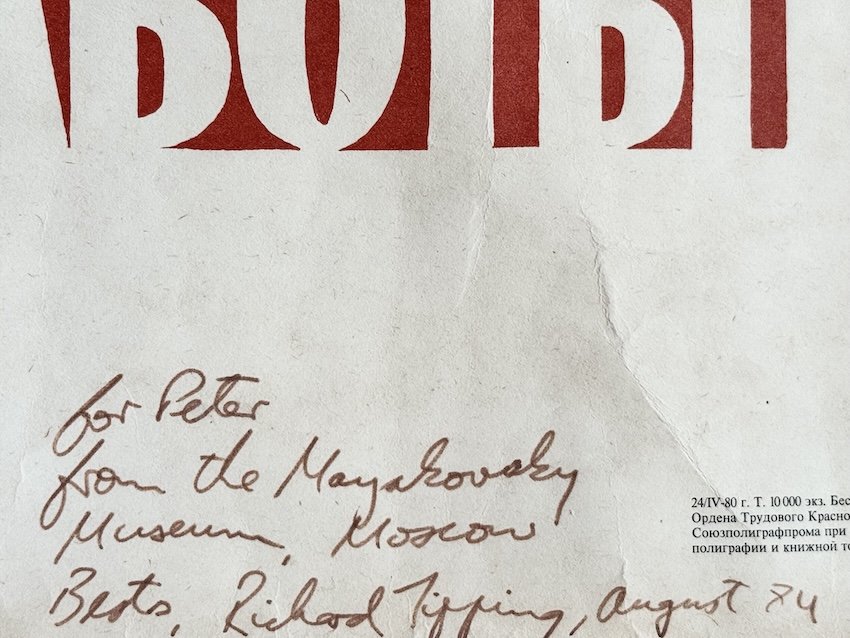 АБОТЫ
for Peter
from the Mayakovsky
Museum, Moscow
Bests, Richard Tipping, August 84
24/IV-80 г. Т. 10 000 экз. Бес
Ордена Трудового Красно
Союзполиграфпрома при
полиграфии и книжной то